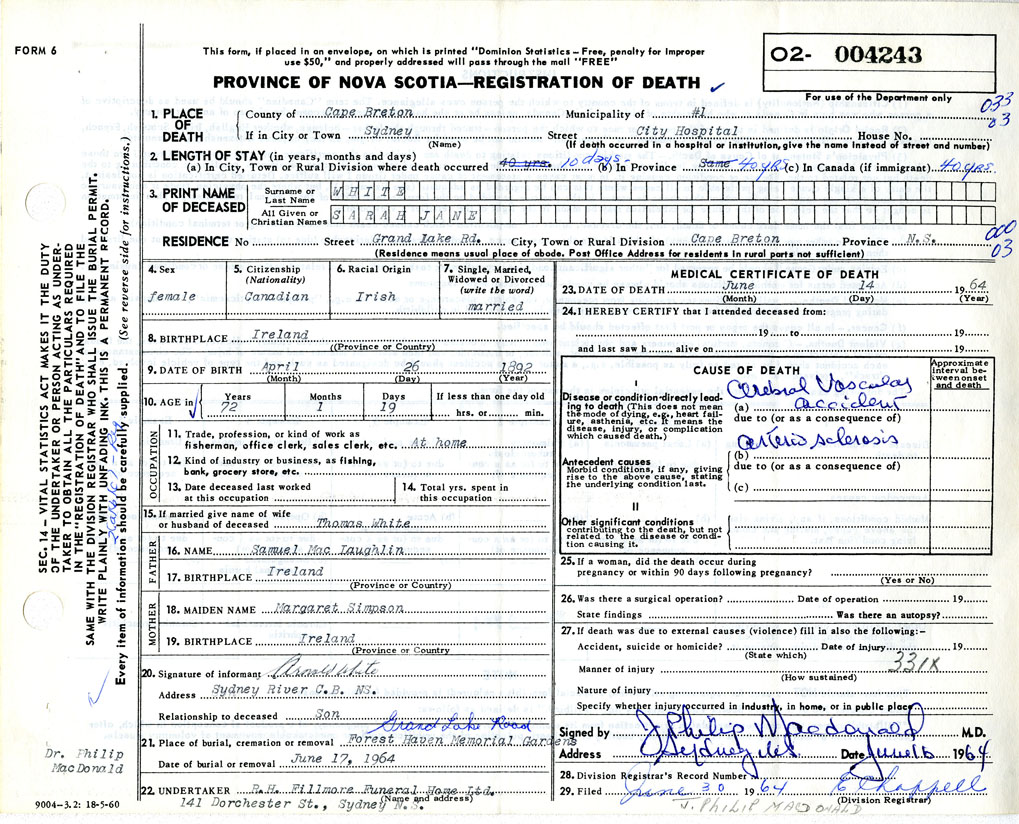 FORM 6
This form, if placed in an envelope, on which is printed "Dominion Statistics – Free, penalty for improper
use $50," and properly addressed will pass through the mail "FREE"
PROVINCE OF NOVA SCOTIA—REGISTRATION OF DEATH
02- 004243
For use of the Department only
033
03
1. PLACE OF DEATH
County of Cape Breton Municipality of #1
If in City or Town Sydney Street City Hospital House No.
(Name) (If death occurred in a hospital or institution, give the name instead of street and number)
2. LENGTH OF STAY (in years, months and days)
(a) In City, Town or Rural Division where death occurred 40 yrs. 10 days- (b) In Province Same 40 yrs (c) In Canada (if immigrant) 40 yrs
3. PRINT NAME OF DECEASED
Surname or Last Name WHITE
All Given or Christian Names SARAH JANE
000
03
RESIDENCE No Street Grand Lake Rd. City, Town or Rural Division Cape Breton Province N.S.
(Residence means usual place of abode. Post Office Address for residents in rural parts not sufficient)
4. Sex
female
5. Citizenship
(Nationality)
Canadian
6. Racial Origin
Irish
7. Single, Married,
Widowed or Divorced
(write the word)
married
8. BIRTHPLACE Ireland
((Province or Country)
9. DATE OF BIRTH April 26 1892
(Month) (Day) (Year)
10. AGE in
Years Months Days If less than one day old
72 1 19 hrs. or min.
OCCUPATION
11. Trade, profession, or kind of work as
fisherman, office clerk, sales clerk, etc. At home
12. Kind of industry or business, as fishing,
bank, grocery store, etc.
13. Date deceased last worked
at this occupation
14. Total yrs. spent in
this occupation
15. If married give name of wife
or husband of deceased Thomas White
FATHER
16. NAME Samuel Mac Laughlin
17. BIRTHPLACE Ireland
(Province or Country)
MOTHER
18. MAIDEN NAME Margaret Simpson
19. BIRTHPLACE Ireland
(Province or Country
20. Signature of informant White
Address Sydney River C.B. NS.
Relationship to deceased Son
Grand Lake Road
21. Place of burial, cremation or removal Forest Haven Memorial Gardens
Date of burial or removal June 17, 1964
22. UNDERTAKER R.H. Fillmore Funeral Home Ltd.
(Name and address)
141 Dorchester St., Sydney N.S.
MEDICAL CERTIFICATE OF DEATH
23. DATE OF DEATH June 14 1964
(Month) (Day) (Year)
24. I HEREBY CERTIFY that I attended deceased from:
19 to 19
and last saw h alive on 19
CAUSE OF DEATH
Approximate
interval be-
tween onset
and death
I
Disease or condition directly lead-
ing to death (This does not mean
the mode of dying, e.g., heart fail-
ure, asthenia, etc. It means the
disease, injury, or complication
which caused death.)
Cerebral Vascular
(a) accident
due to (or as a consequence of)
arterio sclerosis
Antecedent causes
Morbid conditions, if any, giving
rise to the above cause, stating
the underlying condition last.
(b)
due to (or as a consequence of)
(c)
II
Other significant conditions
contributing to the death, but not
related to the disease or condi-
tion causing it.
25. If a woman, did the death occur during
pregnancy or within 90 days following pregnancy?
(Yes or No)
26. Was there a surgical operation? Date of operation 19
State findings Was there an autopsy?
27. If death was due to external causes (violence) fill in also the following:–
Accident, suicide or homicide? Date of injury 19
(State which)
331X
Manner of injury
(How sustained)
Nature of injury
Specify whether injury occurred in industry, in home, or in public place
Signed by J. Philip Macdonald M.D.
Address Sydney NS Date June 16 1964
28. Division Registrar's Record Number
29. Filed June 30 1964 E Chappell
(Division Registrar)
J. PHILIP MACDONALD
SEC. 14 – VITAL STATISTICS ACT MAKES IT THE DUTY
OF THE UNDERTAKER OR PERSON ACTING AS UNDER-
TAKER TO OBTAIN ALL THE PARTICULARS REQUIRED
IN THE "REGISTRATION OF DEATH" AND TO FILE THE
SAME WITH THE DIVISION REGISTRAR WHO SHALL ISSUE THE BURIAL PERMIT.
WRITE PLAINLY WITH UNFADING INK. THIS IS A PERMANENT RECORD.
Every item of information should be carefully supplied. (See reverse side for instructions.)
Dr. Philip
MacDonald
9004-3.2: 18-5-60